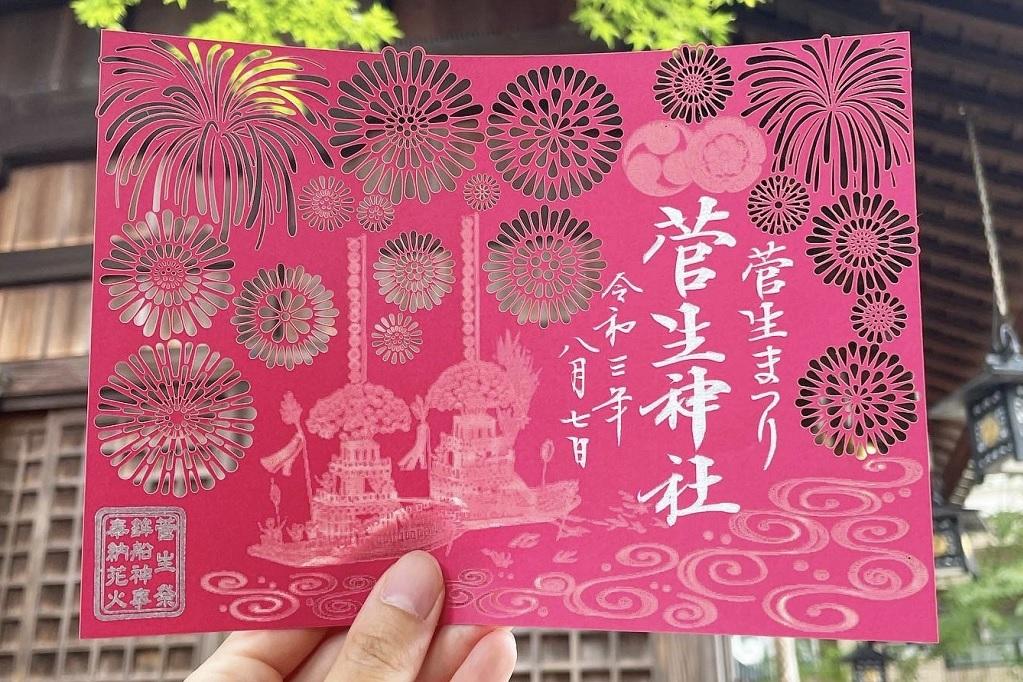 菅生まつり
菅生神社
令和三年
八月七日
菅生祭
鉾船神事
奉納花火